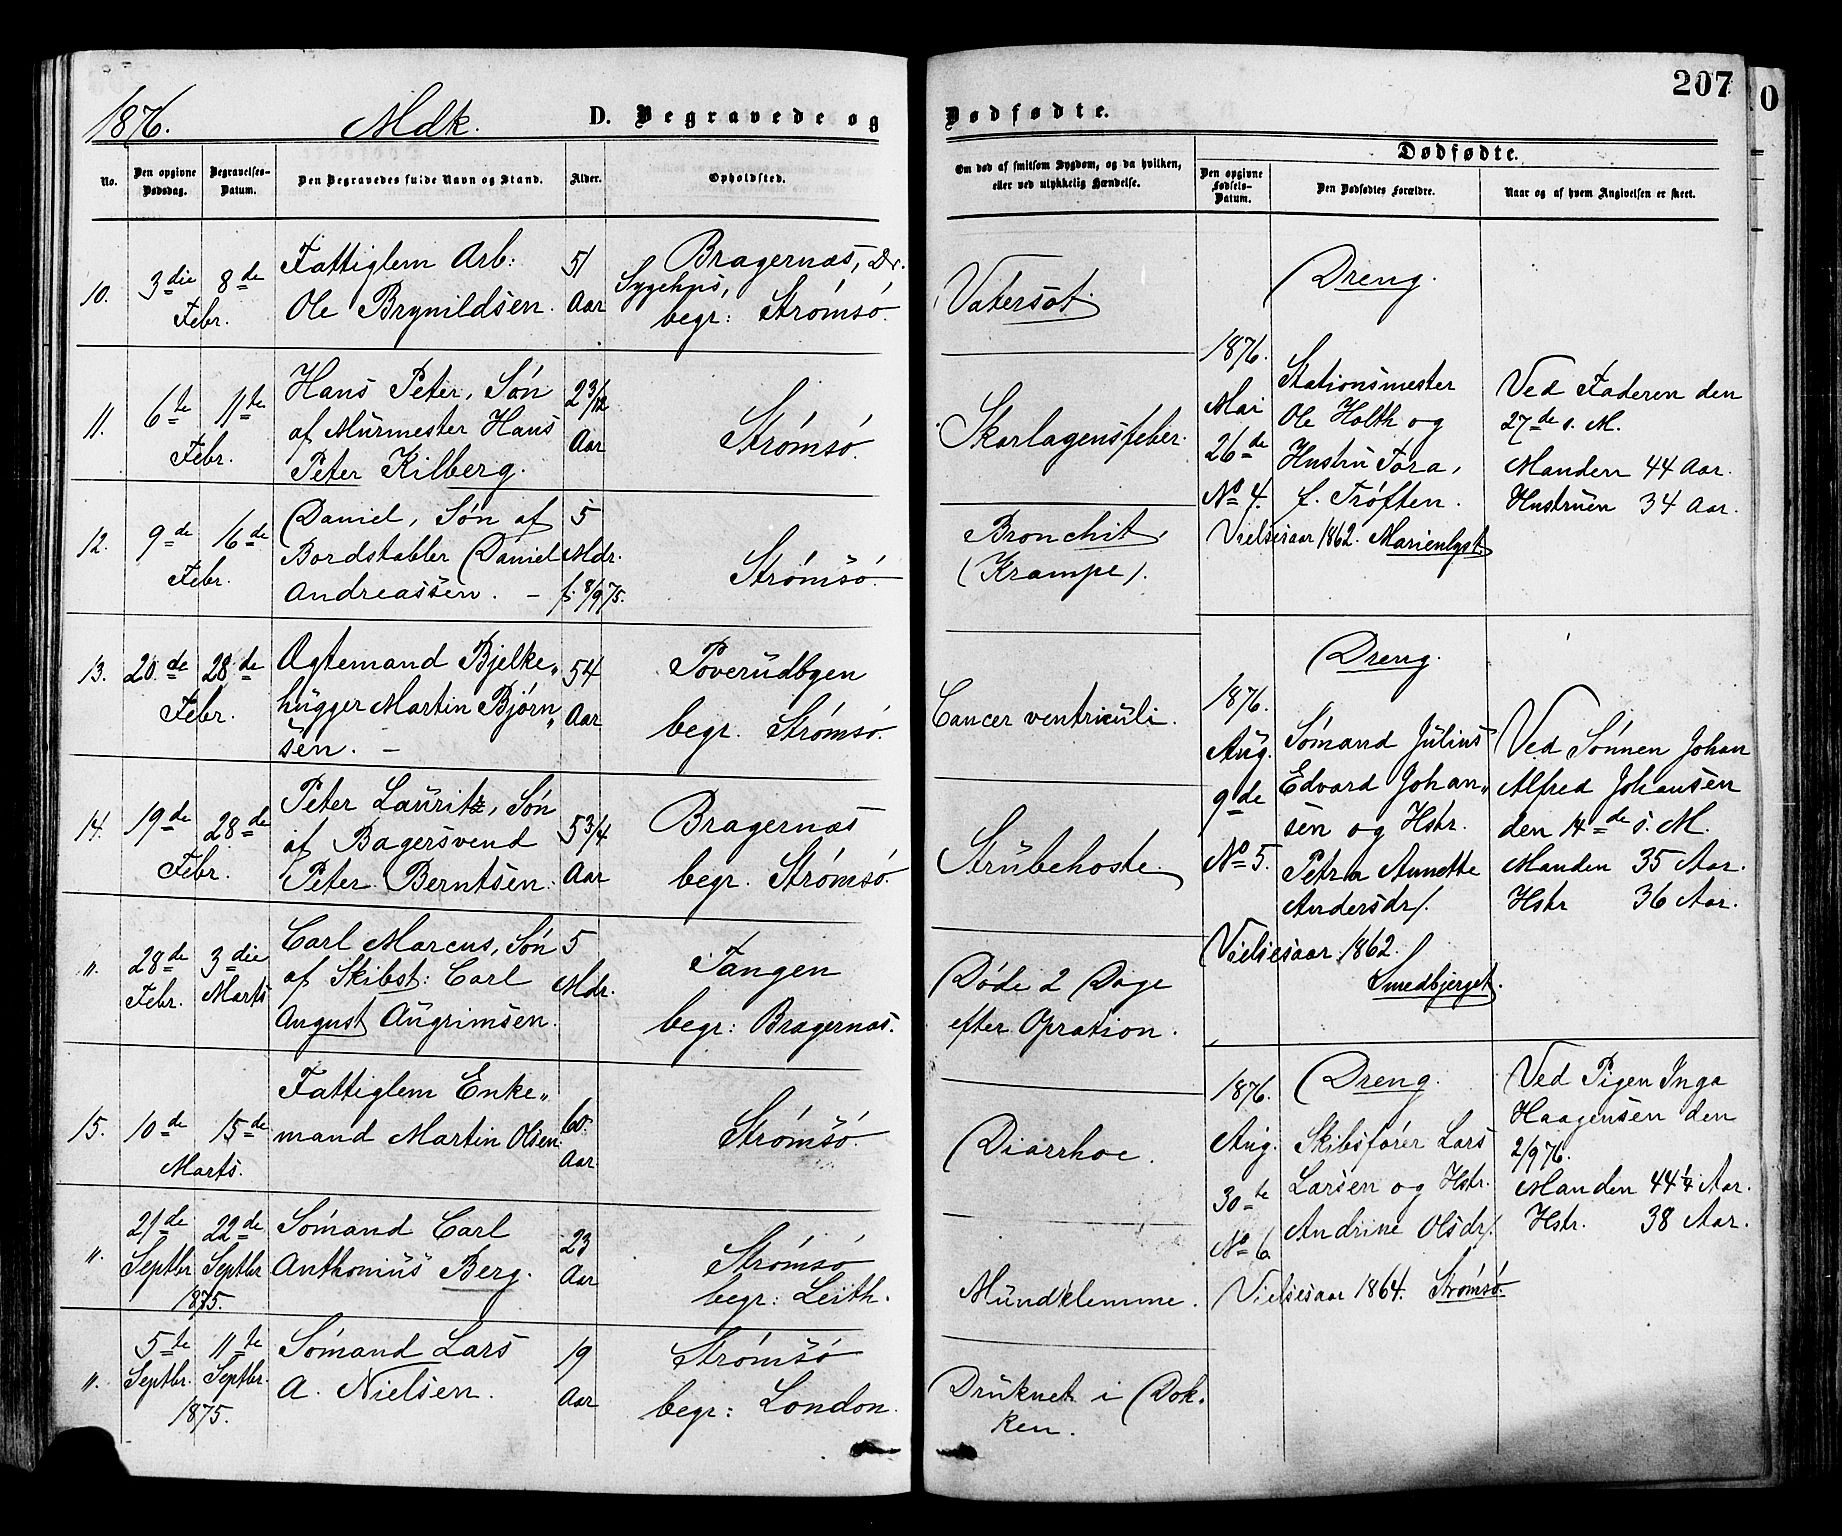 207
0
1876. Mdk. D. Begravede og
Dødfødte.
No.
Den opgivne Dødsdag.
Begravelses-Datum.
Den Begravedes fulde Navn og Stand.
Alder.
Opholdsted.
Om død af smitsom Sygdom, og da hvilken,
eller ved ulykkelig Hændelse.
Dødfødte.
Den opgivne Fødsels-Datum.
Den Dødfødtes Forældre.
Naar og af hvem Angivelsen er skeet.
10.
3die 8de
Febr.
Fattiglem Arb:
Ole Brynildsen.
51
Aar
Bragernæs, Dr.
Sygehus,
begr: Strømsó.
Vatersot.
11.
6te 11te
Febr.
Hans Peter, Søn
af Murmester Hans
Peter Kilberg.
2 3/12
Aar
Strømsó.
Skarlagensfeber.
12.
9de 16de
Febr.
Daniel, Søn af
Bordstabler Daniel
Andreassen. –
5
Mdr.
f. 8/9 75.
Strømsó.
Bronchit
(Krampe).
13.
20de 28de
Febr.
Ægtemand Bjelke„
hugger Martin Bjørn„
sen. –
54
Aar
Poverudbyen
begr. Strømsó.
Cancer ventriculi.
14.
19de 28de
Febr.
Peter Lauritz, Søn
af Bagersvend
Peter Berntsen.
5 3/4
Aar
Bragernæs
begr. Strømsó.
Strubehoste.
„.
28de 3die
Febr. Marts
Carl Marcus, Søn
af Skibst: Carl
August Augrimsen.
5
Mdr.
Tangen
begr: Bragernæs.
Døde 2 Dage
efter Opration.
15.
10de 15de
Marts.
Fattiglem Enke„
mand Martin Olsen.
60
Aar
Strømsó.
Diarrhoe.
„.
21de 22de
Septbr Septbr
1875.
Sómand Carl
Anthonius Berg.
23
Aar
Strømsó
begr: Leith.
Mundklemme.
„.
5te 11te
Septbr. Septbr.
1875.
Sómand Lars
A. Nielsen.
19
Aar
Strømsó
begr: London.
Druknet i Dok-
ken.
Dreng.
1876.
Mai
26de
No 4.
Stationsmester
Ole Holth og
Hustru Tora,
f. Tróften.
Vielsesaar 1862. Marienlyst.
Ved Faderen den
27de s. M.
Manden 44 Aar.
Hustruen 34 Aar.
Dreng.
1876.
Aug.
9de
No 5.
Sómand Julius
Edvard Johan„
sen og Hstr.
Petra Annette
Andersdr.
Vielsesaar 1862.
Smedbjerget.
Ved Sønnen Johan
Alfred Johansen
den 14de s. M.
Manden 35 Aar.
Hstr 36 Aar.
1876.
Aug.
30te
No 6
Dreng.
Skibsfører Lars
Larsen og Hstr.
Andrine Olsdr.
Vielsesaar 1864. Strømsó.
Ved Pigen Inga
Haagensen den
2/9 76.
Manden 44 1/4 Aar.
Hstr. 38 Aar.